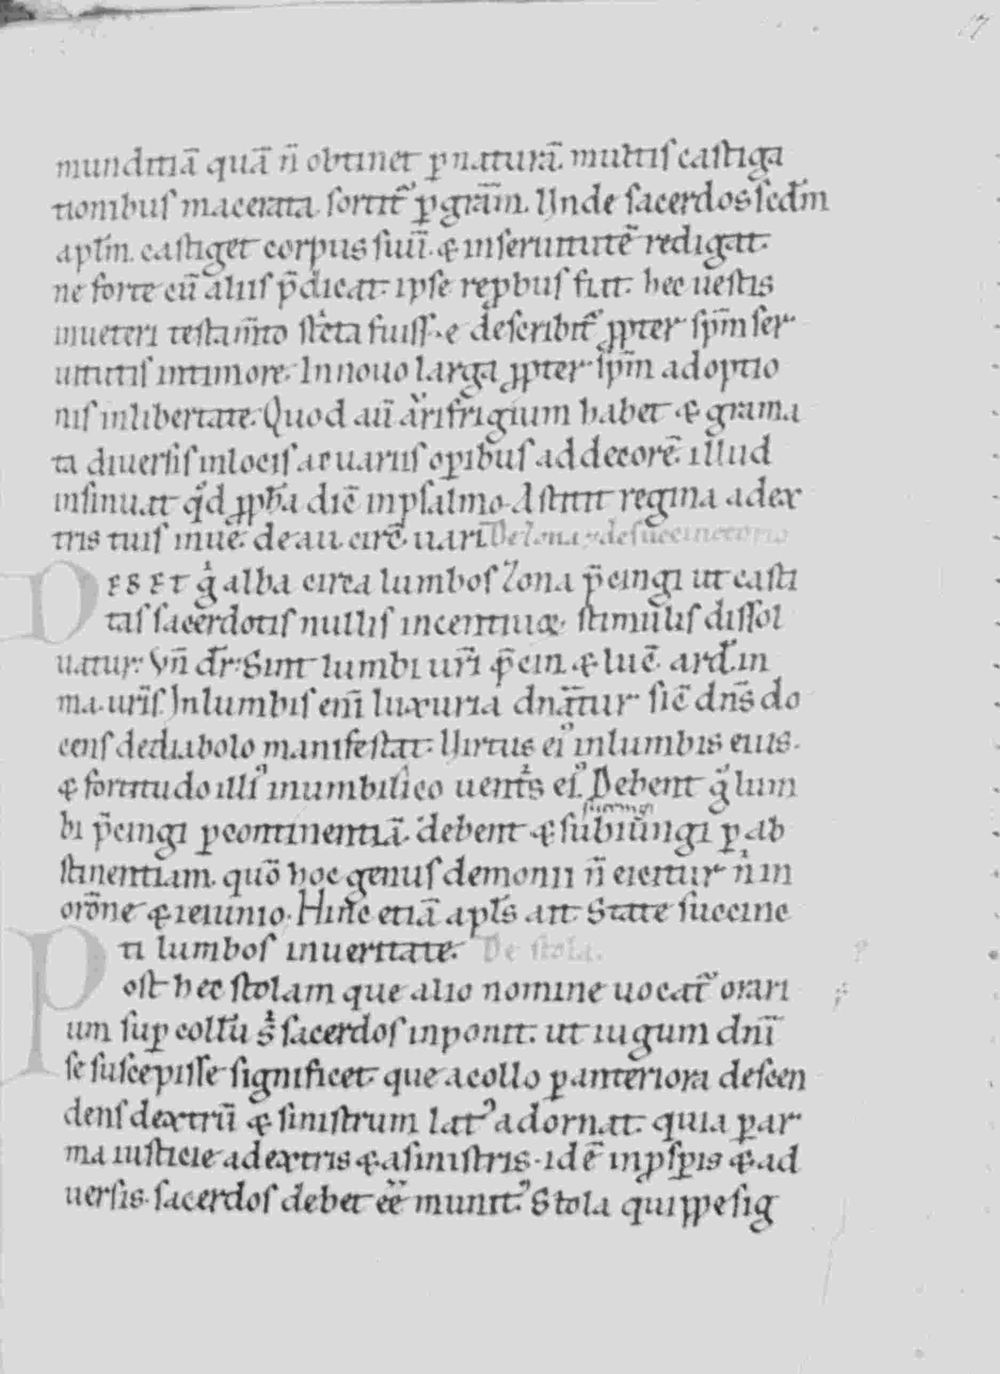 17
munditiā quā n̄ obtinet ꝑ naturā. multis castiga
tionibus macerata sortit᷒ ꝑ grām. Unde sacerdos scdm̄
aplm̄. castiget corpus suū. ⁊ in seruitutē redigat.
ne forte cū aliis p̄dicat. ipse reꝓbus fiat. hec uestis
in ueteri testam̄to stͥcta fuisse describit᷒ ꝓpter spm̄ ser
uitutis in timore. In nouo larga ꝓpter spm̄ adoptio
nis in libertate. Quod aū aurifrigium habet ⁊ grama
ta diuersis in locis ac uariis oꝑibus ad decorē. illud
insinuat qd̾ ꝓph̄a dic̄ in psalmo. Astitit regina a dex
tris tuis in ue. deau. circ̄. uari. De zona ⁊ de succinctorio
DEBET g̊ alba circa lumbos zona p̄cingi ut casti
tas sacerdotis nullis incentiuoꝝ stimulis dissol
uatur. Vn̄ dr̄. Sint lumbi ur̄i p̄cin. ⁊ luc̄. ard. in
ma. ur̄is. In lumbis eni luxuria dn̄atur sic̄ dn̄s do
cens de diabolo manifestat. Uirtus ei᷒ in lumbis eius.
⁊ fortitudo illi᷒ in umbilico uentͥs ei᷒. Debent g̊ lum
bi p̄cingi ꝑ continentiā. debent ⁊ subiungi ꝑ ab
stinentiam. quō hoc genus demonii n̄ eicitur nͥ in
orōne ⁊ ieiunio. Hinc etiā apl̄s ait. State succinc
ti lumbos in ueritate. De stola.
Post hec stolam que alio nomine uocat᷒ orari
um suꝑ collū sͥ sacerdos inponit. ut iugum dn̄i
se suscepisse significet. que a collo ꝑ anteriora descen
dens dextrū ⁊ sinistrum lat᷒ adornat. quia ꝑ ar
ma iusticie a dextris ⁊ a sinistris. id ē in prosꝑis ⁊ ad
uersis. sacerdos debet ēē munit᷒. Stola quippe sig